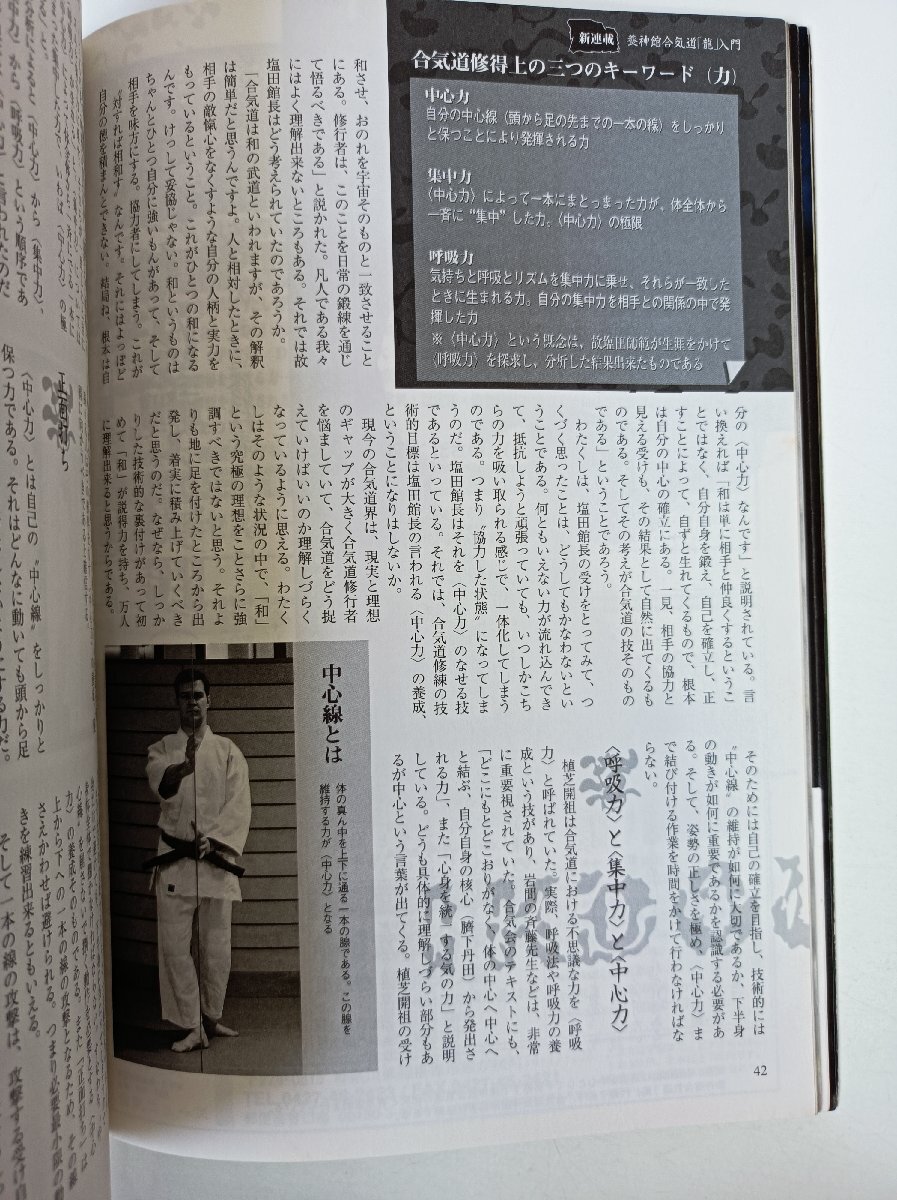 新連載
養神館合気道「龍」入門
合気道修得上の三つのキーワード（力）
中心力
自分の中心線（頭から足の先までの一本の線）をしっかり
と保つことにより発揮される力
集中力
〈中心力〉によって一本にまとまった力が、体全体から
一斉に“集中”した力。〈中心力〉の極限
呼吸力
気持ちと呼吸とリズムを集中力に乗せ、それらが一致した
ときに生まれる力。自分の集中力を相手との関係の中で発
揮した力
※〈中心力〉という概念は、故塩田師範が生涯をかけて
〈呼吸力〉を探求し、分析した結果出来たものである
和させ、おのれを宇宙そのものと一致させること
にある。修行者は、このことを日常の鍛練を通じ
て悟るべきである」と説かれた。凡人である我々
にはよく理解出来ないところもある。それでは故
塩田館長はどう考えられていたのであろうか。
「合気道は和の武道といわれますが、その解釈
は簡単だと思うんですよ。人と相対したときに、
相手の敵愾心をなくすような自分の人柄と実力を
もっているということ。これがひとつの和になる
んです。けっして妥協じゃない。和というものは
ちゃんとひとつ自分に強いもんがあって、そして
相手を味方にする。協力者にしてしまう。これが
〝対すれば相和す〟なんです。それにはよっぽど
自分の徳を積まんとできない。結局ね、根本は自
分の〈中心力〉なんです」と説明されている。言
い換えれば「和は単に相手と仲良くするというこ
とではなく、自分自身を鍛え、自己を確立し、正
すことによって、自ずと生れてくるもので、根本
は自分の中心の確立にある。一見、相手の協力と
見える受けも、その結果として自然に出てくるも
のである。そしてその考えが合気道の技そのもの
である」ということであろう。
わたくしは、塩田館長の受けをとってみて、つ
くづく思ったことは、どうしてもかなわないとい
うことである。何ともいえない力が流れ込んでき
て、抵抗しようと頑張っていても、いつしかこち
らの力を吸い取られる感じで、一体化してしまう
のである。つまり〝協力した状態〟になってしま
うのだ。塩田館長はそれを〈中心力〉のなせる技
であるといっている。それでは、合気道修練の技
術的目標は塩田館長の言われる〈中心力〉の養成、
ということになりはしないか。
現今の合気道界は、現実と理想
のギャップが大きく合気道修行者
を悩ましていて、合気道をどう捉
えていけばいいのか理解しづらく
なっているように思える。わたく
しはそのような状況の中で、「和」
という究極の理想をことさらに強
調すべきではないと思う。それよ
りも地に足を付けたところから出
発し、着実に積み上げていくべき
だと思うのだ。なぜなら、しっか
りした技術的な裏付けがあって初
めて「和」が説得力を持ち、万人
に理解出来ると思うからである。
そのためには自己の確立を目指し、技術的には
〝中心線〟の維持が如何に大切であるか、下半身
の動きが如何に重要であるかを認識する必要があ
る。そして、姿勢の正しさを極め、〈中心力〉ま
で結び付ける作業を時間をかけて行わなければな
らない。
〈呼吸力〉と〈集中力〉と〈中心力〉
植芝開祖は合気道における不思議な力を〈呼吸
力〉と呼ばれていた。実際、呼吸法や呼吸力の養
成という技があり、岩間の斉藤先生などは、非常
に重要視されていた。合気会のテキストにも、
「どこにもとどこおりがなく、体の中心へ中心へ
と結ぶ、自分自身の核心（臍下丹田）から発出さ
れる力」、また「心身を統一する気の力」と説明
している。どうも具体的に理解しづらい部分もあ
るが中心という言葉が出てくる。植芝開祖の受け
中心線とは
体の真ん中を上下に通る一本の線である。この線を
維持する力が〈中心力〉となる
42
正面打ち
〈中心力〉とは自己の〝中心線〟をしっかりと
保つ力である。それはどんなに動いても頭から足
上から下への一本の線の攻撃となるため、その線
さえかわせば避けられる。つまり必要最小限の動
きを練習出来るともいえる。
そして一本の線の攻撃は、攻撃する受け自